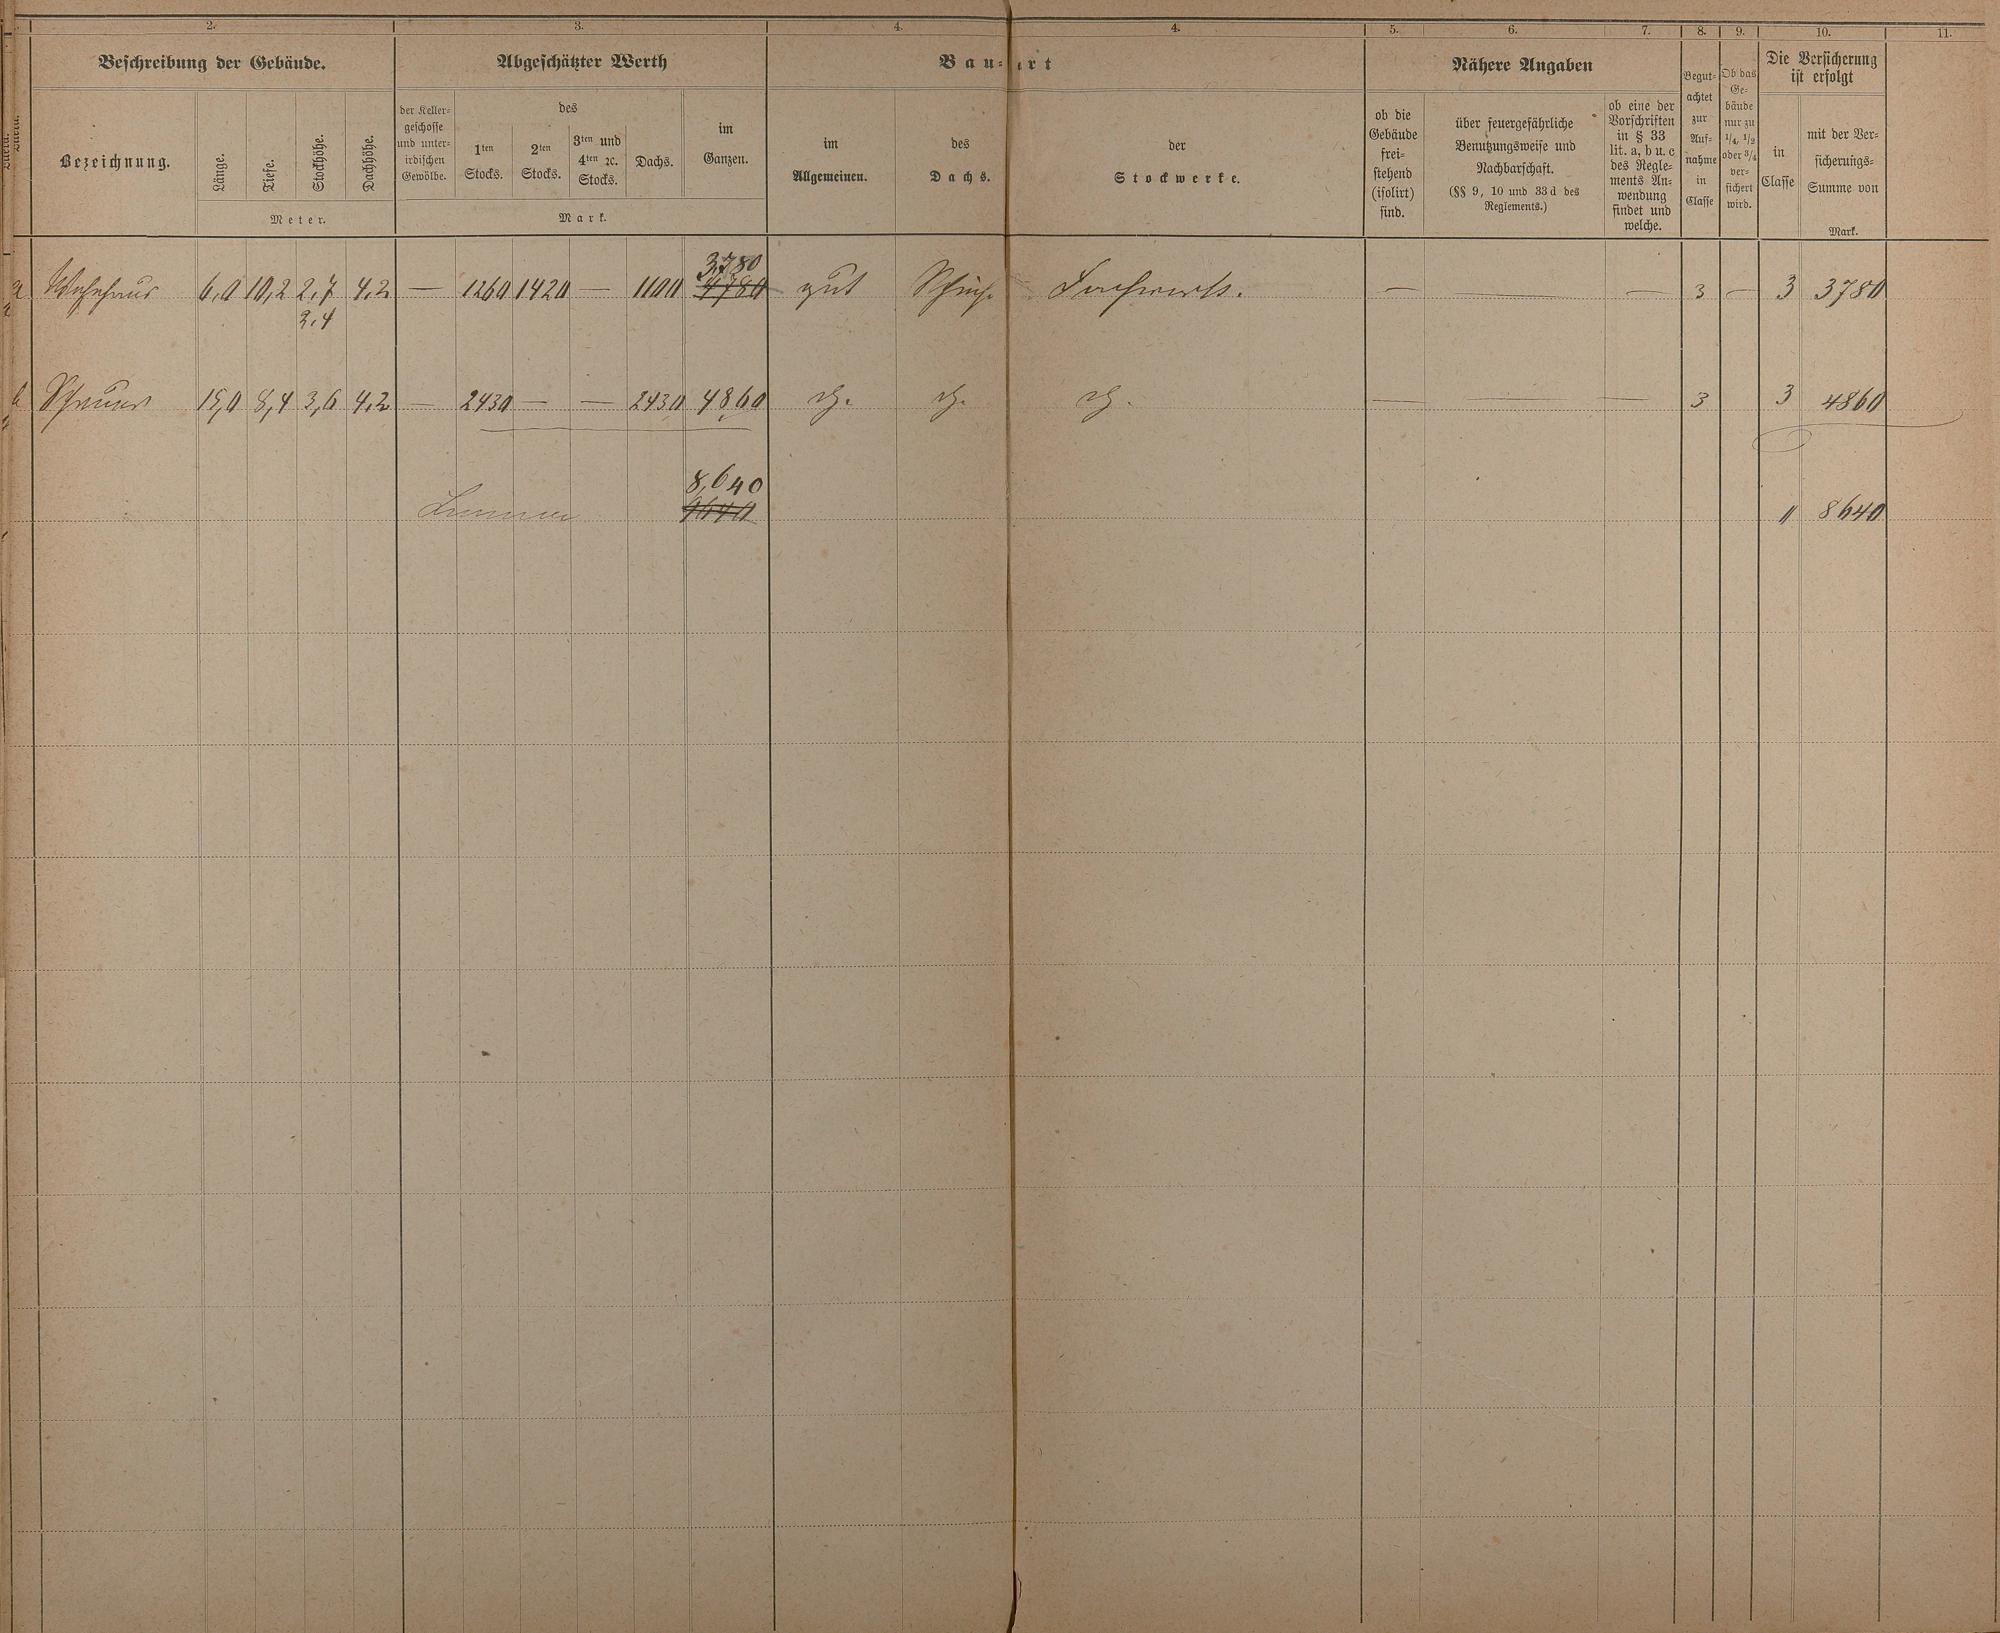 2. 3. 4. 4. 5. 6. 7. 8. 9. 10. 11.
Beschreibung der Gebäude. Abgeschätzter Werth Bau-art Nähere Angaben Die Versicherung
ist erfolgt
Bezeichnung. Länge. Tiefe. Stockhöhe. Dachhöhe.
Meter.
der Keller-
geschosse
und unter-
irdischen
Gewölbe.
des
1ten
Stocks.
2ten
Stocks.
3ten und
4ten ꝛc.
Stocks.
Dachs.
im
Ganzen.
Mark.
im
Allgemeinen.
des
Dachs.
der
Stockwerke.
ob die
Gebäude
frei-
stehend
(isolirt)
sind.
über feuergefährliche
Benutzungsweise und
Nachbarschaft.
(§§ 9, 10 und 33 d des
Reglements.)
ob eine der
Vorschriften
in § 33
lit. a, b u. c
des Regle-
ments An-
wendung
findet und
welche.
Begut-
achtet
zur
Auf-
nahme
in
Classe
Ob das
Ge-
bäude
nur zu
1/4, 1/2
oder 3/4
ver-
sichert
wird.
in
Classe
mit der Ver-
sicherungs-
Summe von
Mark.
3,780
a Wohnhaus 6,0 10,2 2,7 4,2 — 1260 1420 — 1100 4780 gut Fachwerk. — — — 3 — 3 3780
2,4
b Scheuer 15,0 8,4 3,6 4,2 — 2430 — — 2430 4860 — — — 3 3 4860
8,640
Summa 9640 " 8640